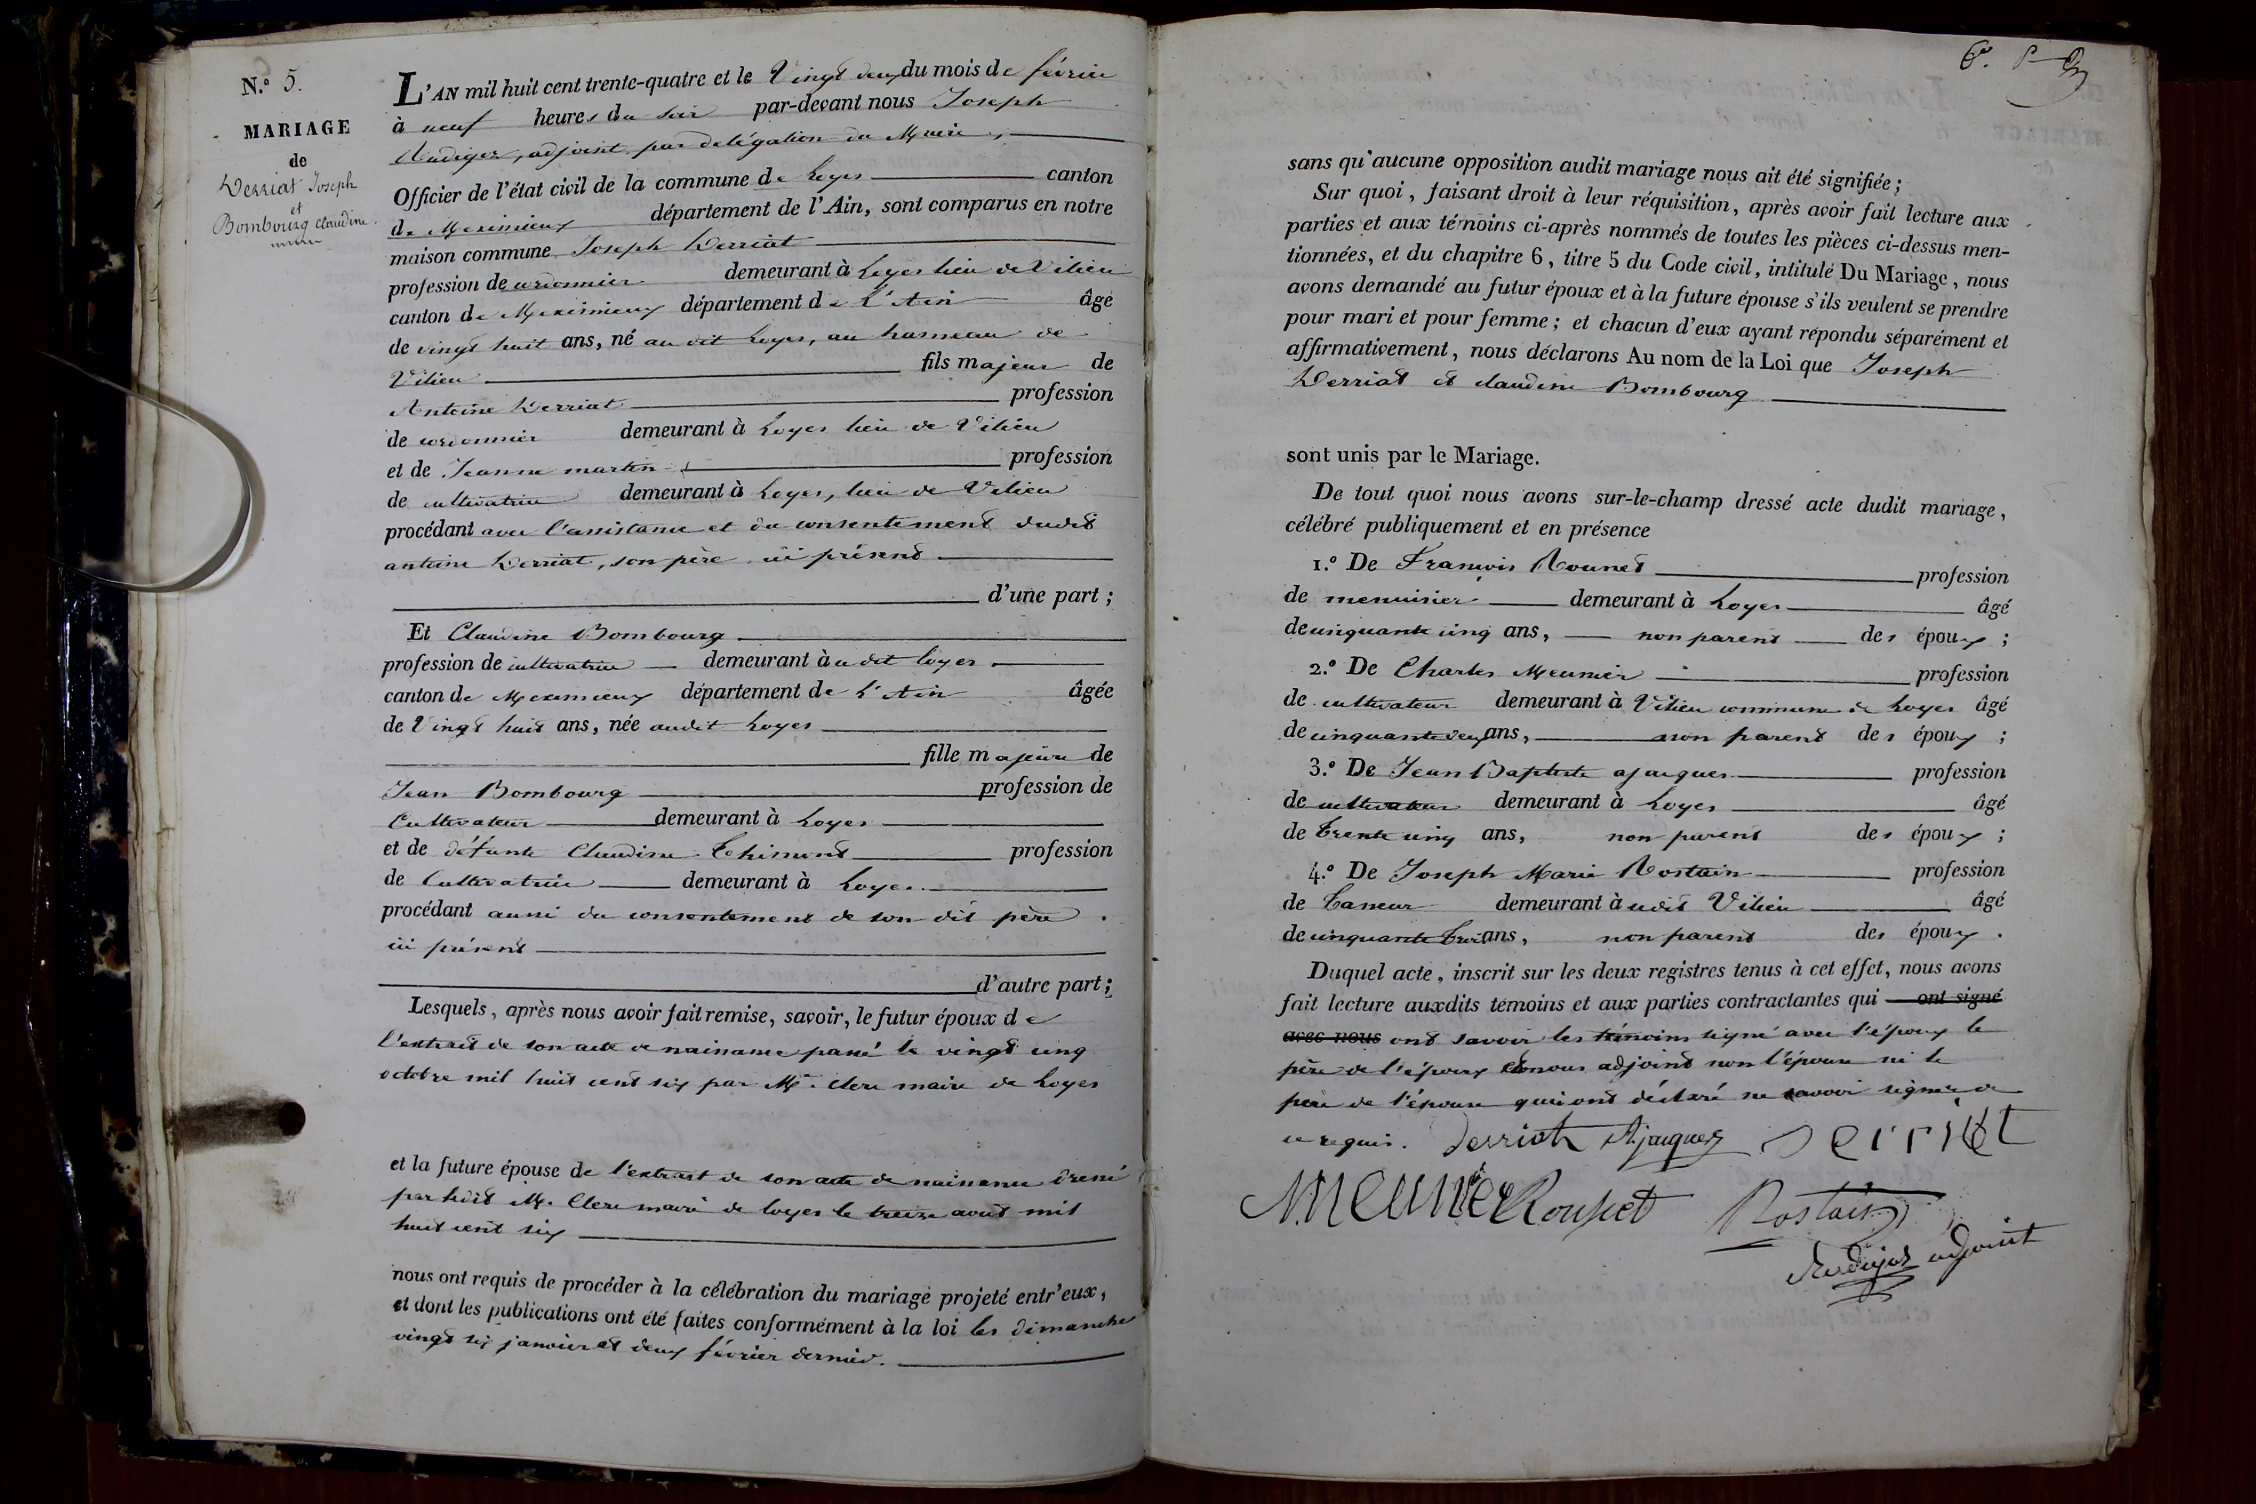 N.º 5.
MARIAGE
de
Derriat Joseph
et
Bombourg claudine
L'AN mil huit cent trente-quatre et le Vingt deux du mois de février
à neuf heures du soir par-devant nous Joseph
adjoint par délégation du Maire,
Officier de l'état civil de la commune de Loyes canton
de Meximieux département de l'Ain, sont comparus en notre
maison commune Joseph Derriat
profession de cordonnier demeurant à Loyes lieu de Vilieu
canton de Meximieux département de L'Ain âgé
de vingt huit ans, né au dit Loyes, au hameau de
Vilieu fils majeur de
Antoine Derriat profession
de cordonnier demeurant à Loyes lieu de Vilieu
et de Jeanne martin profession
de cultivatrice demeurant à Loyes, lieu de Vilieu
procédant avec l'assistance et du consentement dudit
antoine Derriat, son père ici présent
d'une part ;
Et Claudine Bombourg
profession de cultivatrice demeurant à u dit Loyes
canton de Meximieux département de L'Ain âgée
de Vingt huit ans, née audit Loyes
fille majeure de
Jean Bombourg profession de
Cultivateur demeurant à Loyes
et de défunte Claudine profession
de Cultivatrice demeurant à Loyes
procédant aussi du consentement de son dit père
ici présent
d'autre part ;
Lesquels, après nous avoir fait remise, savoir, le futur époux de
l'extrait de son acte de naissance passé le vingt cinq
octobre mil huit cent six par Mr. Clerc maire de Loyes
et la future épouse de l'extrait de son acte de naissance dressé
par ledit M. Clerc maire de Loyes le treize août mil
huit cent six
nous ont requis de procéder à la célébration du mariage projeté entr'eux,
et dont les publications ont été faites conformément à la loi les dimanches
vingt six janvier et deux février dernier.
6.
sans qu'aucune opposition audit mariage nous ait été signifiée ;
Sur quoi, faisant droit à leur réquisition, après avoir fait lecture aux
parties et aux témoins ci-après nommés de toutes les pièces ci-dessus men-
tionnées, et du chapitre 6, titre 5 du Code civil, intitulé Du Mariage, nous
avons demandé au futur époux et à la future épouse s'ils veulent se prendre
pour mari et pour femme ; et chacun d'eux ayant répondu séparément et
affirmativement, nous déclarons Au nom de la Loi que Joseph
Derriat et claudine Bombourg
sont unis par le Mariage.
De tout quoi nous avons sur-le-champ dressé acte dudit mariage,
célébré publiquement et en présence
1.º De François profession
de menuisier demeurant à Loyes âgé
de cinquante cinq ans, non parent des époux ;
2.º De Charles Meunier profession
de cultivateur demeurant à Vilieu commune de Loyes âgé
de cinquante deux ans, non parent des époux ;
3.º De Jean Baptiste ajacques profession
de cultivateur demeurant à Loyes âgé
de trente cinq ans, non parent des époux ;
4.º De Joseph Marie Rostain profession
de Taneur demeurant à udit Vilieu âgé
de cinquante trois ans, non parent des époux.
Duquel acte, inscrit sur les deux registres tenus à cet effet, nous avons
fait lecture auxdits témoins et aux parties contractantes qui ont signé
avec nous ont savoir les témoins signé avec l'époux le
père de l'époux et nous adjoint non l'épouse ni le
père de l'épouse qui ont déclaré ne savoir signer de
ce requis. derriat Ajacques derriat
Meunier Rouset Rostain
adjoint